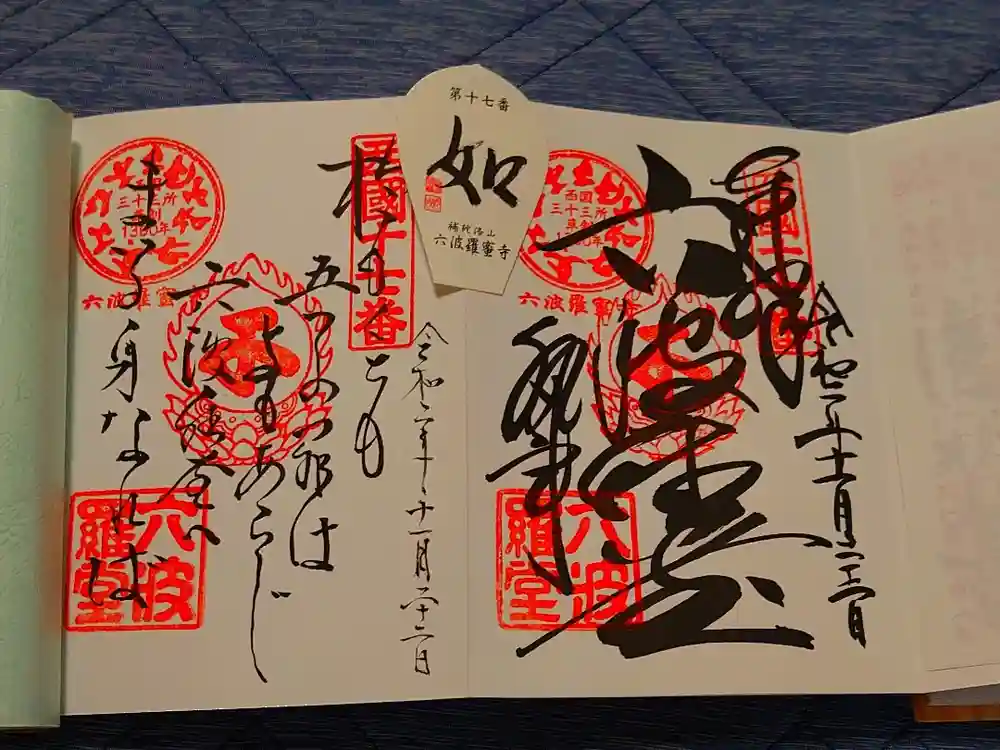 第十七番
如
補陀洛山
六波羅蜜寺
奉拝
令和二年十一月二十二日
西国十七番
六波羅堂
西国
三十三所
草創
1300年
六波羅蜜寺
六波羅堂
令和二年十一月二十二日
西國十七番
おもくとも
五つの罪は
よもあらじ
六波羅堂へ
まゐる身なれば
西国
三十三所
草創
1300年
六波羅蜜寺
六波羅堂